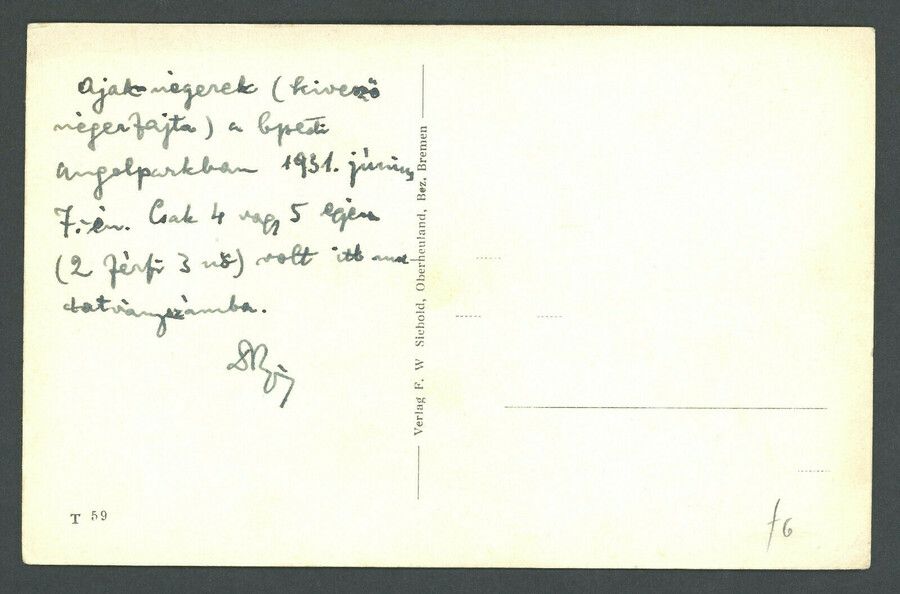 Ajak-négerek (kivesző
négerfajta) a bpesti
angolparkban 1931. június
7.-én. Csak 4 vagy 5 egyén
(2 férfi 3 nő) volt itt mu-
tatványszámba.
Verlag F. W Siebold, Oberneuland, Bez. Bremen
T 59
f6